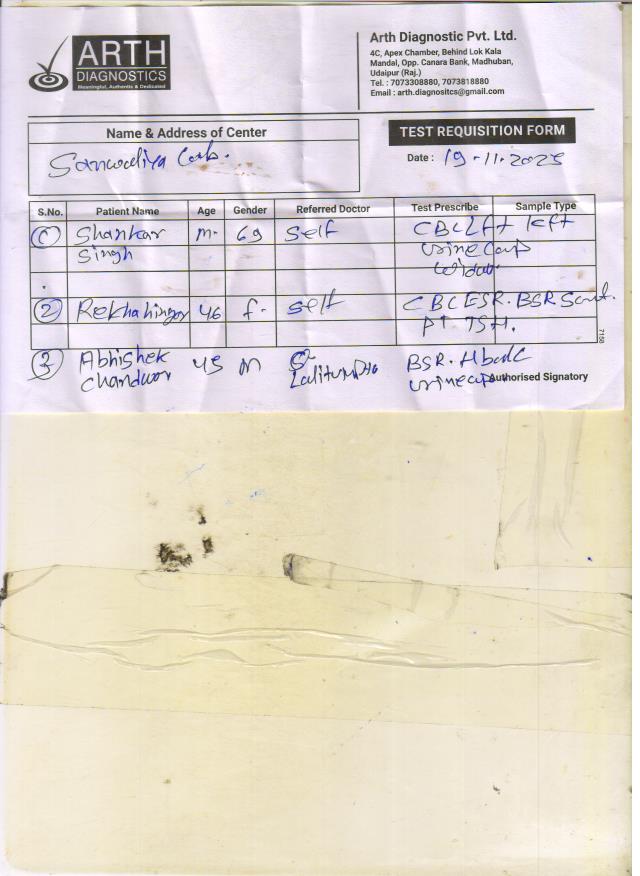 ARTH
DIAGNOSTICS
Meaningful, Authentic & Dedicated
Arth Diagnostic Pvt. Ltd.
4C, Apex Chamber, Behind Lok Kala
Mandal, Opp. Canara Bank, Madhuban,
Udaipur (Raj.)
Tel. : 7073308880, 7073818880
Email : arth.diagnositcs@gmail.com
Name & Address of Center
TEST REQUISITION FORM
Date : 19-11-2025
S.No. Patient Name Age Gender Referred Doctor Test Prescribe Sample Type
1 Shankar m. 69 self CBC Lft kft
Singh urine
2 46 f. self CBC ESR. BSR
PT. TSH.
7150
3 Abhishek 45 m BSR.
urine
Authorised Signatory